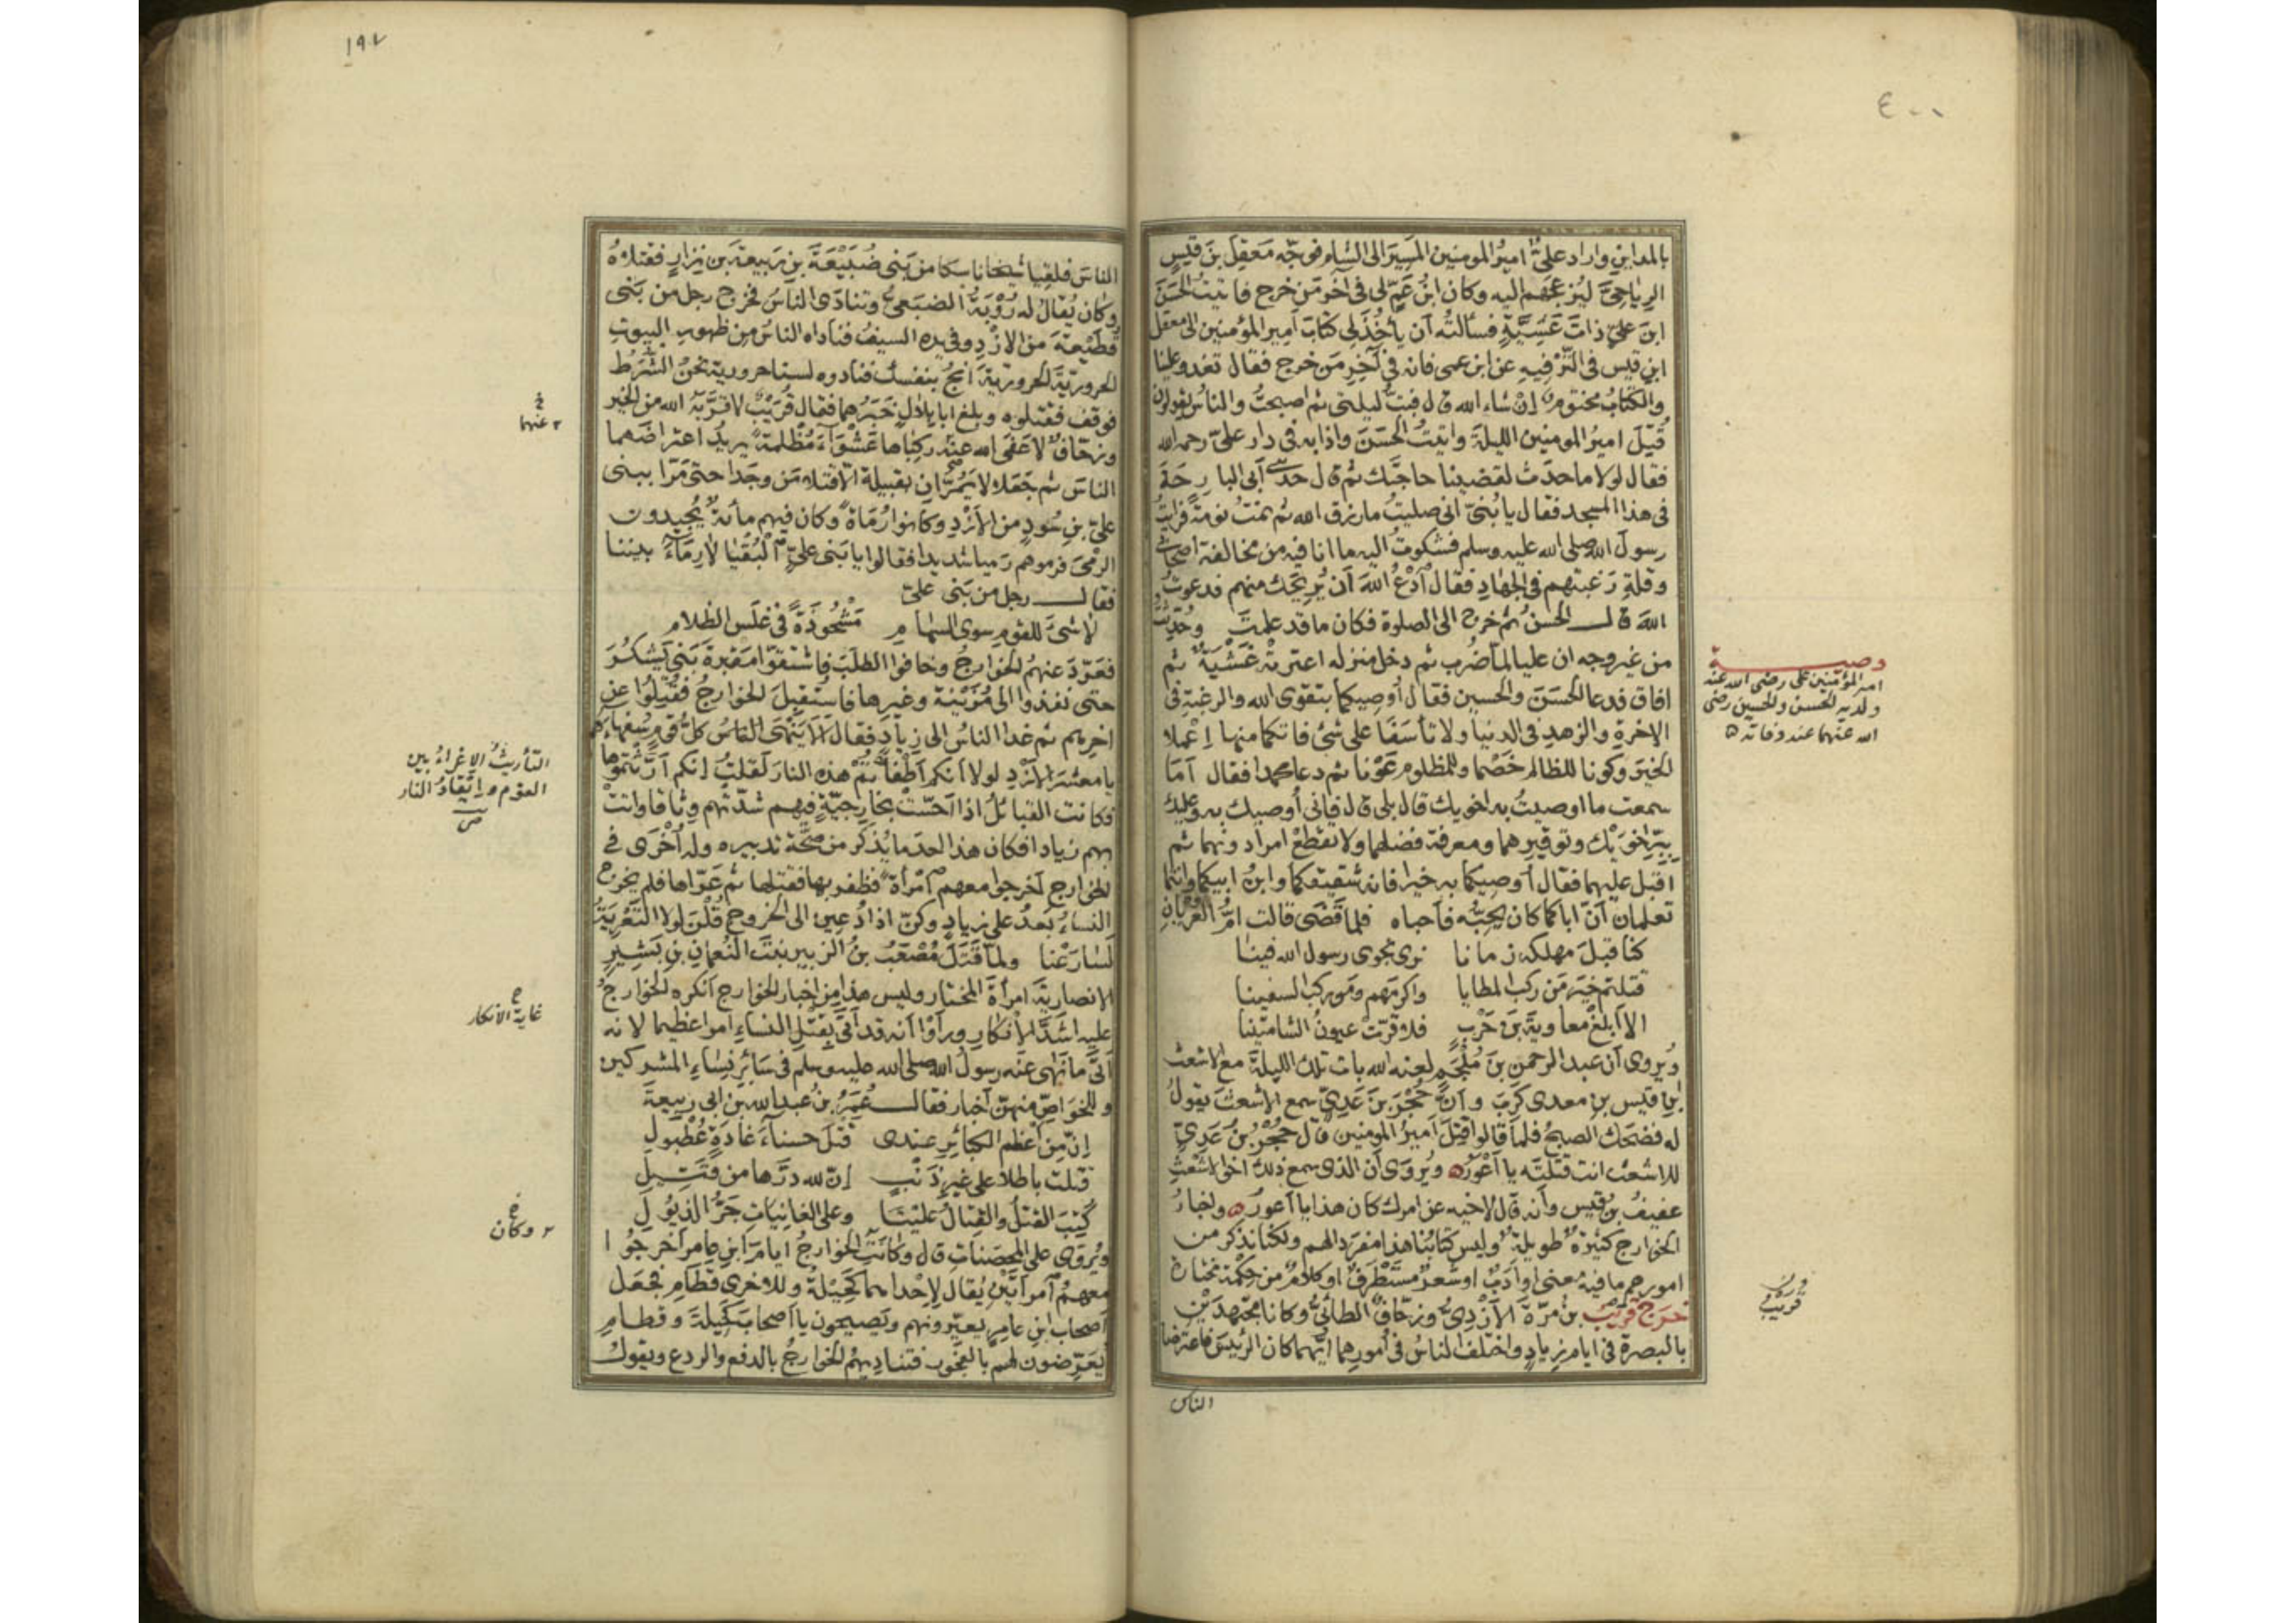 ٤٠٠
بالمداين واراد علىٌّ اميرُ المومنين المَسِيرَ الى الشام فوجّه مَعقِلَ بنَ قيسٍ
الرِياحىَّ ليُزعجَهم اليه وكان ابنُ عَمٍّ لى فى آخر مَن خرج فاتيتُ الحَسَنَ
ابنَ علىٍّ ذاتَ عَشيّةٍ فسألتُه ان يأخُذَ لى كتابَ اميرِ المؤمنين الى معقل
ابنِ قيس فى التَّرْفِيهِ عن ابن عمى فانه فى آخِرِ مَن خرج فقال تغدو علينا
والكتابُ مختوم إنْ شاء الله قال فبتُّ ليلتى ثم اصبحتُ والناسُ يقولون
قُتِلَ اميرُ المومنين الليلةَ واتيتُ الحسَنَ واذا به فى دار علىّ رحمه الله
فقال لولا ما حدَث لقضينا حاجتَك ثم قال حدثنى أبى البارِحَةَ
فى هذا المسجد فقال يا بُنَىَّ انى صليتُ ما رزق الله ثم نمتُ نومةً فرايتُ
رسولَ الله صلى الله عليه وسلم فشكوتُ اليه ما انا فيه من مخالفة اصحابى
وقلةِ رَغبتهم فى الجهادِ فقال اُدْعُ اللهَ اَن يُرِيحَك منهم فدعوتُ
اللهَ قال الحسنُ ثم خرج الى الصلوة فكان ما قد علمتَ وحُدّثتُ
من غير وجه ان عليا لمّا ضُرب ثم دخل منزله اعترتْهُ غَشْيَةٌ ثم
افاق فدعا الحَسَنَ والحسين فقال اُوصِيكما بتقوى الله والرغبةِ فى
الاخرةِ والزهدِ فى الدنيا ولا تأسَفَا على شئ فاتكما منها اِعْمَلا
الخيرَ وكونا للظالم خَصْما وللمظلوم عَوْنا ثم دعا محمدا فقال اَمَا
سمعتَ ما اوصيتُ به اخويك قال بلى قال فإنى أوصيك به وعليك
بِبِرِّ اخَوَيْك وتوقيرِهما ومعرفة فضلهما ولا تقطعْ امرا دونهما ثم
اقبل عليهما فقال اُوصيكما به خيرا فانه شقيقكما وابنُ ابيكما وانتما
تعلمان اَنّ اباكما كان يُحِبُّه فأحباه فلما قَضَى قالت امُّ العُرْيَانِ
كنا قبلَ مهلكه زمانا نرى نجوى رسول الله فينا
قتلتم خيرَ مَن ركب المطايا واكرمَهم ومن ركب السفينا
الا اَبلغْ معاويةَ بنَ حَرْبٍ فلا قرّتْ عيونُ الشامتينا
ويُروى اَن عبد الرحمن بنَ مُلْجَمٍ لعنه الله بات تلك الليلةَ مع الاشعث
ابن قيس بن معدى كَرِبَ وأنَّ حُجْرَ بنَ عَدِىّ سمع الاشعثَ يقولُ
له فضحك الصبحُ فلما قالوا قُتِلَ اَميرُ المومنين قال حُجْرُ بنُ عَدِىٍّ
للاشعث انت قتلتَه يا اَعْوَرُ ويُروَى اَن الذى سمع ذلك اخى الاشعثِ
عفيفُ بنُ قيس وأنه قال لاخيه عن امرك كان هذا يا اعورُ واخبارُ
الخوارج كثيرةٌ طويلةٌ وليس كتابُنا هذا مفرَدا لهم ولكنا نذكر من
امورهم ما فيه معنى اوادَبٌ اوشعرٌ مستَظْرَفٌ اوكلامٌ من حِكْمة مختارة
خرج قريبُ بنُ مُرّةَ الأَزْدِىُّ وزحّافٌ الطائىُّ وكانا مجتهدَيْن
بالبصرة فى ايام زيادٍ واختلف الناسُ فى اُمورِهما ايُّهما كان الرئيسَ فاعترضا
الناس
وصية
امير المؤمنين على رضى الله عنه
ولديه الحسن والحسين رضى
الله عنهما عند وفاته
قريب
١٩٧
الناسَ فلقِيا شيخا ناسكا من بَنى ضُبَيْعَةَ بنِ رَبيعة بن نِزارٍ فقتلاهُ
وكان يُقالُ له رُؤْبَةُ الضبعىُّ وتنادَى الناسُ فخرج رجل من بَنى
قُطَيْعةَ من الازْدِ وفى يده السيفُ فناداه الناسُ مِن ظهورِ البيوتِ
الحروريّةَ الحروريّةَ اُنجُ بنفسك فنادوه لسنا حروريةً نحنُ الشُّرَطُ
فوقف فقتلوه وبلغ ابا بلال خَبَرُهما فقال قُرَيْبٌ لا قرَّبَهُ الله من الخير
وزحّافٌ لا عَفَى الله عنه ركِباها عَشْوَاءَ مُظْلمةً يريدُ اعتراضَهما
الناسَ ثم جَعَلا لا يَمُرّانِ بقبيلة الا قتلا مَن وجَدا حتى مَرّا ببنى
علىّ بن سُودٍ من الأزْدِ وكانوا رُماةً وكان فيهم مائةٌ يُجيدون
الرمْىَ فرموهم رَميا شديدا فقالوا يا بَنى علىٍّ اَلْبُقْيَا لا رِمَاءَ بيننا
فقال رجل من بَنى علىّ
لا شىءَ للقوم سوى السهامِ مَشْحُوذَةً فى غَلَسِ الظلام
فعَرّدَ عنهُم الخوارجُ وخافوا الطلَبَ فاشتقّوا مقبرةَ بَنى يَشكُرَ
حتى نفذوا الى مُزَيْنةَ وغيرِها فاستُقبل الخوارجُ فقُتِلُوا عن
اخرِهم ثم غدا الناسُ الى زيادٍ فقال اَلا يَنْهَى الناسُ كلُّ قومٍ سُفهاءَكم
يا معشرَ الأَزْدِ لولا اَنكم اَطْفأتُمْ هذه النارَ لَقلتُ اِنكم اَرّثتموها
فكانت القبائلُ اذا اَحَسّتْ بخارِجيّةٍ فيهم شدّتْهم وِثاقا واتتْ
بهم زيادا فكان هذا احدَ ما يُذكر من صِحّة تدبيره وله اُخْرَى فى
الخوارج اَخرجوا معهم اُمْرأةً فظفر بها فقتلها ثم عَرّاها فلم يخرج
النساءُ بَعدُ على زيادٍ وكُنّ اذا دُعين الى الخروج قُلْنَ لولا التَّعْرِيَةُ
لَسارَعْنا ولمّا قَتَلَ مُصْعَبُ بنُ الزبير بنتَ النُعمانِ بنِ بَشيرٍ
الانصاريةَ امرأةَ المختار وليس هذا مِن اخبار الخوارج اَنكره الخوارجُ
عليه اشَدَّ الانكار وراَوْا اَنه قد اَتى بقَتْلِ النساءِ امرا عظيما لانه
اَتَى ما نهى عَنه رسولُ الله صلى الله عليه وسلم فى سَائِرِ نِسَاءِ المشركين
وللخواصِّ منهنّ اَخبار فقال عُمَرُ بنُ عُبد الله بن ابى رَبيعةَ
اِنّ مِن اَعظم الكبائرِ عندى قتلَ حسناءَ غادَةٍ عُطْبُولِ
قتلت باطلا على غير ذَنبٍ اِنّ لله درَّها من قَتيلِ
كُتِبَ القتلُ والقتالُ علينا وعلى الغانياتِ جَرُّ الذيُولِ
ويُروَى على المحصَناتِ قال وكانَتِ الخوارجُ ايامَ ابنِ عامر اَخرجُوا
معهمُ اُمرأتَيْنِ يُقالُ لإِحْداهما كُحَيْلةُ وللاخرى قَطَامِ فجعَل
اَصحابُ ابنِ عامِرٍ يعيّرونهم ويَصيحون يا اَصحابَ كُحيلةَ وقطامِ
يُعَرِّضون لهم بالفجورِ فتنادِيهمُ الخوارجُ بالدفع والردع ويقولُ
عنهما
التأريثُ الإغراءُ بين
القوم وايقادُ النار
ص
غاية الانكار
وكان